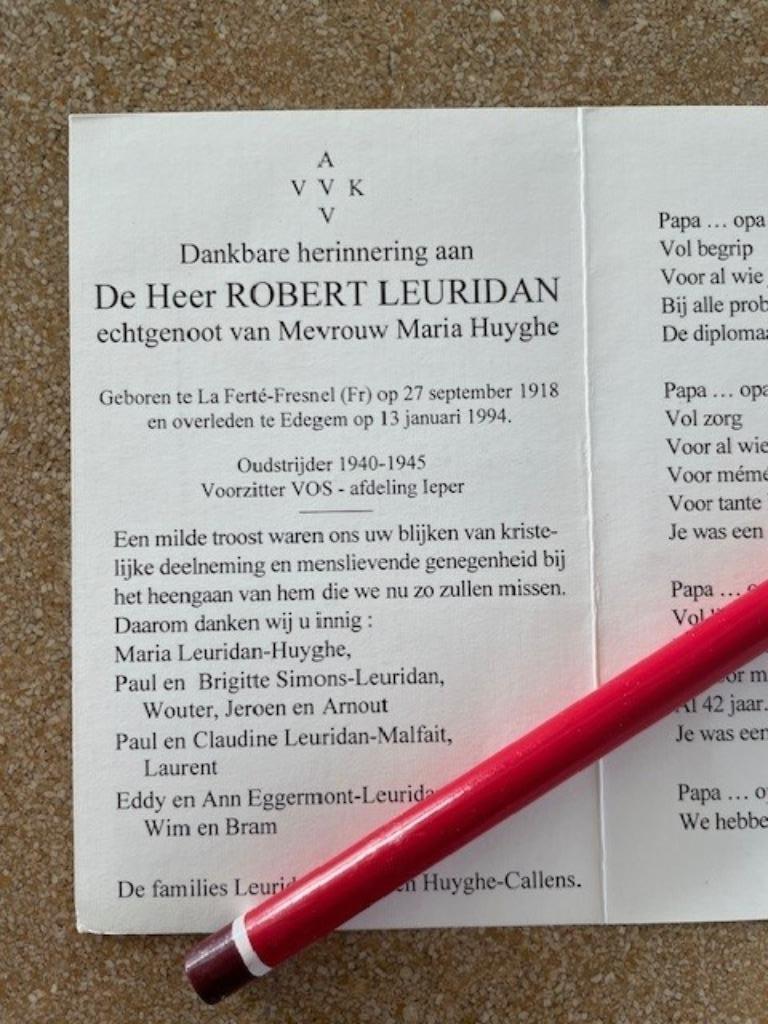 A
V V K
V
Dankbare herinnering aan
De Heer ROBERT LEURIDAN
echtgenoot van Mevrouw Maria Huyghe
Geboren te La Ferté-Fresnel (Fr) op 27 september 1918
en overleden te Edegem op 13 januari 1994.
Oudstrijder 1940-1945
Voorzitter VOS - afdeling Ieper
Een milde troost waren ons uw blijken van kriste-
lijke deelneming en menslievende genegenheid bij
het heengaan van hem die we nu zo zullen missen.
Daarom danken wij u innig :
Maria Leuridan-Huyghe,
Paul en Brigitte Simons-Leuridan,
Wouter, Jeroen en Arnout
Paul en Claudine Leuridan-Malfait,
Laurent
Eddy en Ann
Wim en Bram
De families Huyghe-Callens.
Papa ... opa
Vol begrip
Voor al wie
Bij alle
De
Papa ... opa
Vol zorg
Voor al wie
Voor mémé
Voor tante
Je was een
Papa ...
42 jaar.
Je was een
Papa ...
We